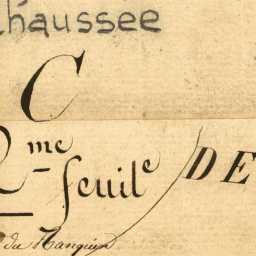 chaussee
C
2me feuile DE
du Manguin